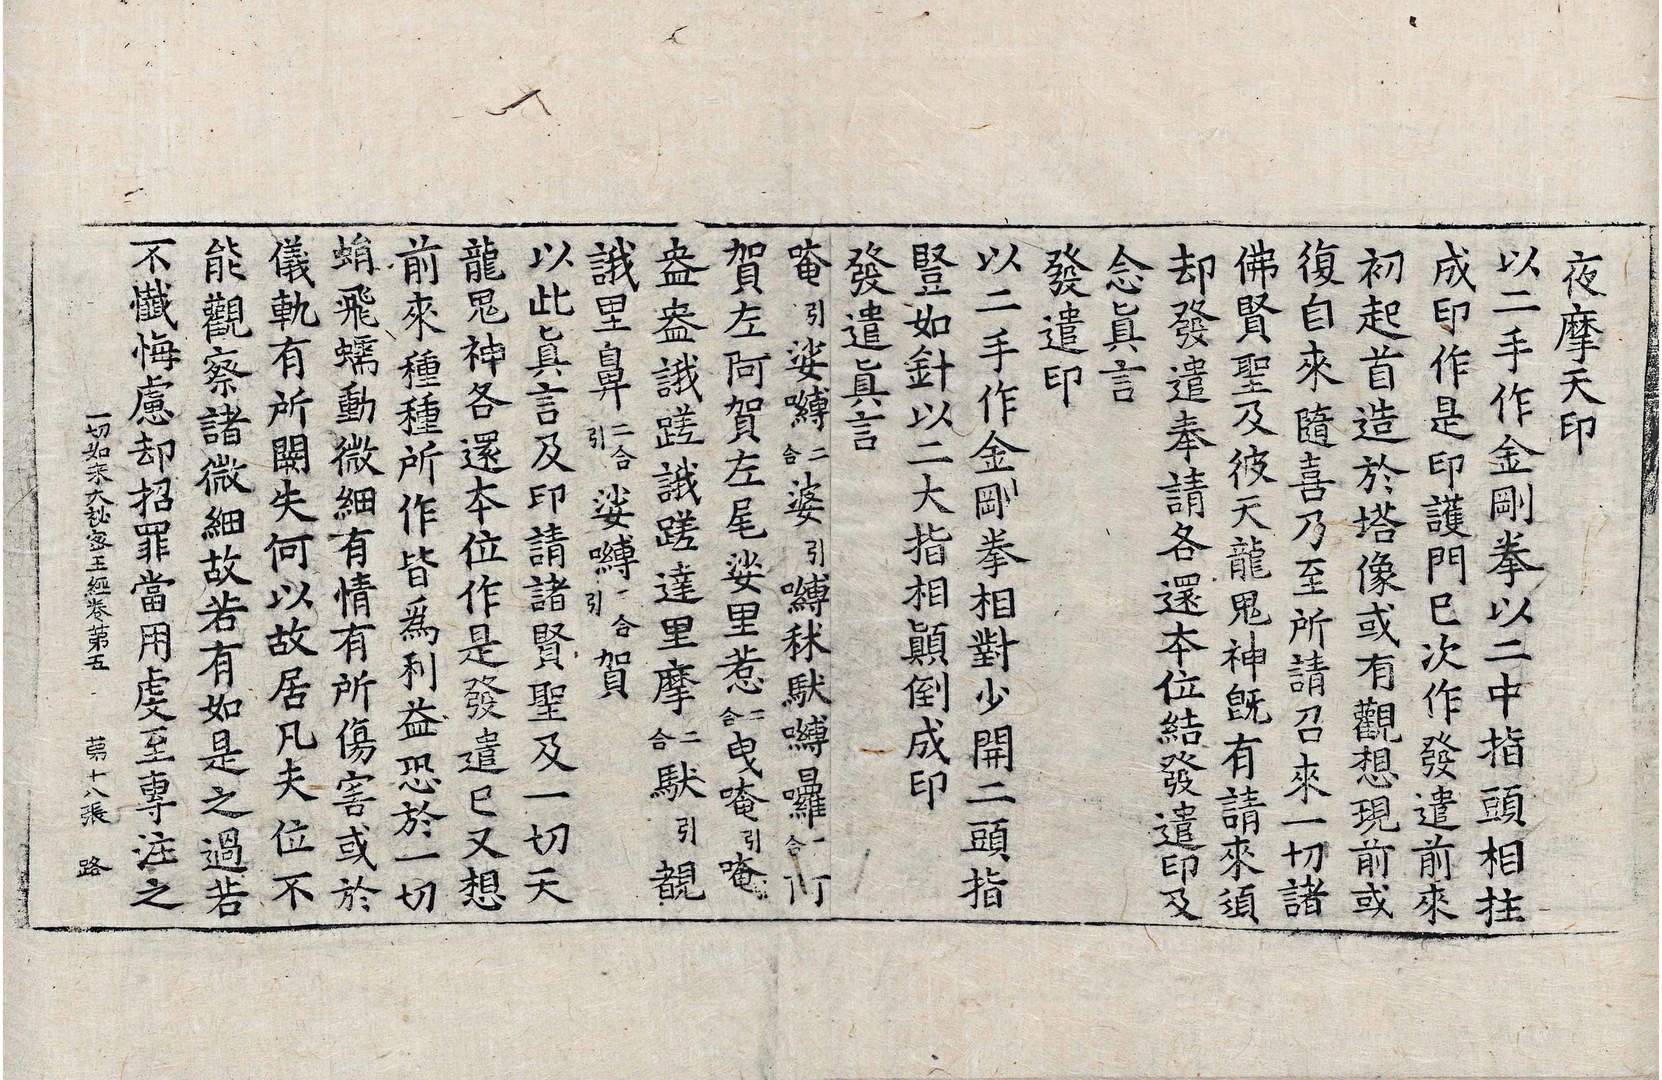 夜摩天印
以二手作金剛拳以二中指頭相拄
成印作是印護門已次作發遣前來
初起首造於塔像或有觀想現前或
復自來隨喜乃至所請召來一切諸
佛賢聖及彼天龍鬼神旣有請來須
却發遣奉請各還本位結發遣印及
念眞言
發遣印
以二手作金剛拳相對少開二頭指
豎如針以二大指相顚倒成印
發遣眞言
唵引娑嚩二合婆引嚩秫馱嚩囉二合阿
賀左阿賀左尾娑里惹二合曳唵引唵
盎盎誐蹉誐蹉達里摩二合馱引覩
誐里鼻二合引娑嚩二合引賀
以此眞言及印請諸賢聖及一切天
龍鬼神各還本位作是發遣已又想
前來種種所作皆爲利益恐於一切
蛸飛蠕動微細有情有所傷害或於
儀軌有所闕失何以故居凡夫位不
能觀察諸微細故若有如是之過若
不懺悔慮却招罪當用虔至專注之
一切如來大秘密王經卷第五 第十八張 路